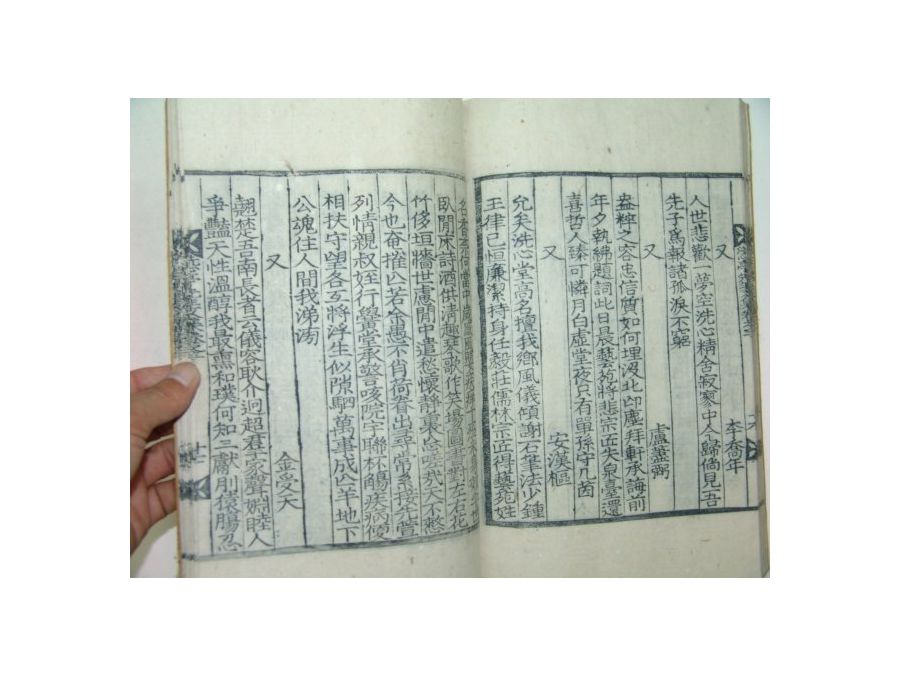 人世悲歡一夢空洗心精舍寂寥中今歸倘見吾
先子爲報諸孤淚不窮
又
李喬年
盎粹之容忠信質如何埋沒北邙塵拜軒承誨前
年夕執紼題詞此日晨藝苑將悲宗匠失泉臺還
喜哲人臻可憐月白虛堂夜只有單孫守几茵
又
盧蓋弼
允矣洗心堂高名擅我鄕風儀傾謝石筆法少鍾
王律己恒廉潔持身任毅莊儒林宗匠得藝苑姓
又
安漢樞
名香
臥閒床詩酒供淸趣琴歌作笑場圖書對左右花
竹侈垣墻世慮閒中遣愁懷靜裏忘嗟哉天不憖
今也奄摧亡若余愚不肖荷眷出尋常系接先萱
列情親叔姪行黌堂承警咳院宇聯杯觴疾病候
相扶守望各互將浮生似隙駟萬事成亡羊地下
公魂住人間我涕滂
又
金受天
翹楚吾南長者公儀容耿介逈超羣家聲婣睦人
爭艶天性溫醇我最熏和璞何知三獻刖猿腸忍